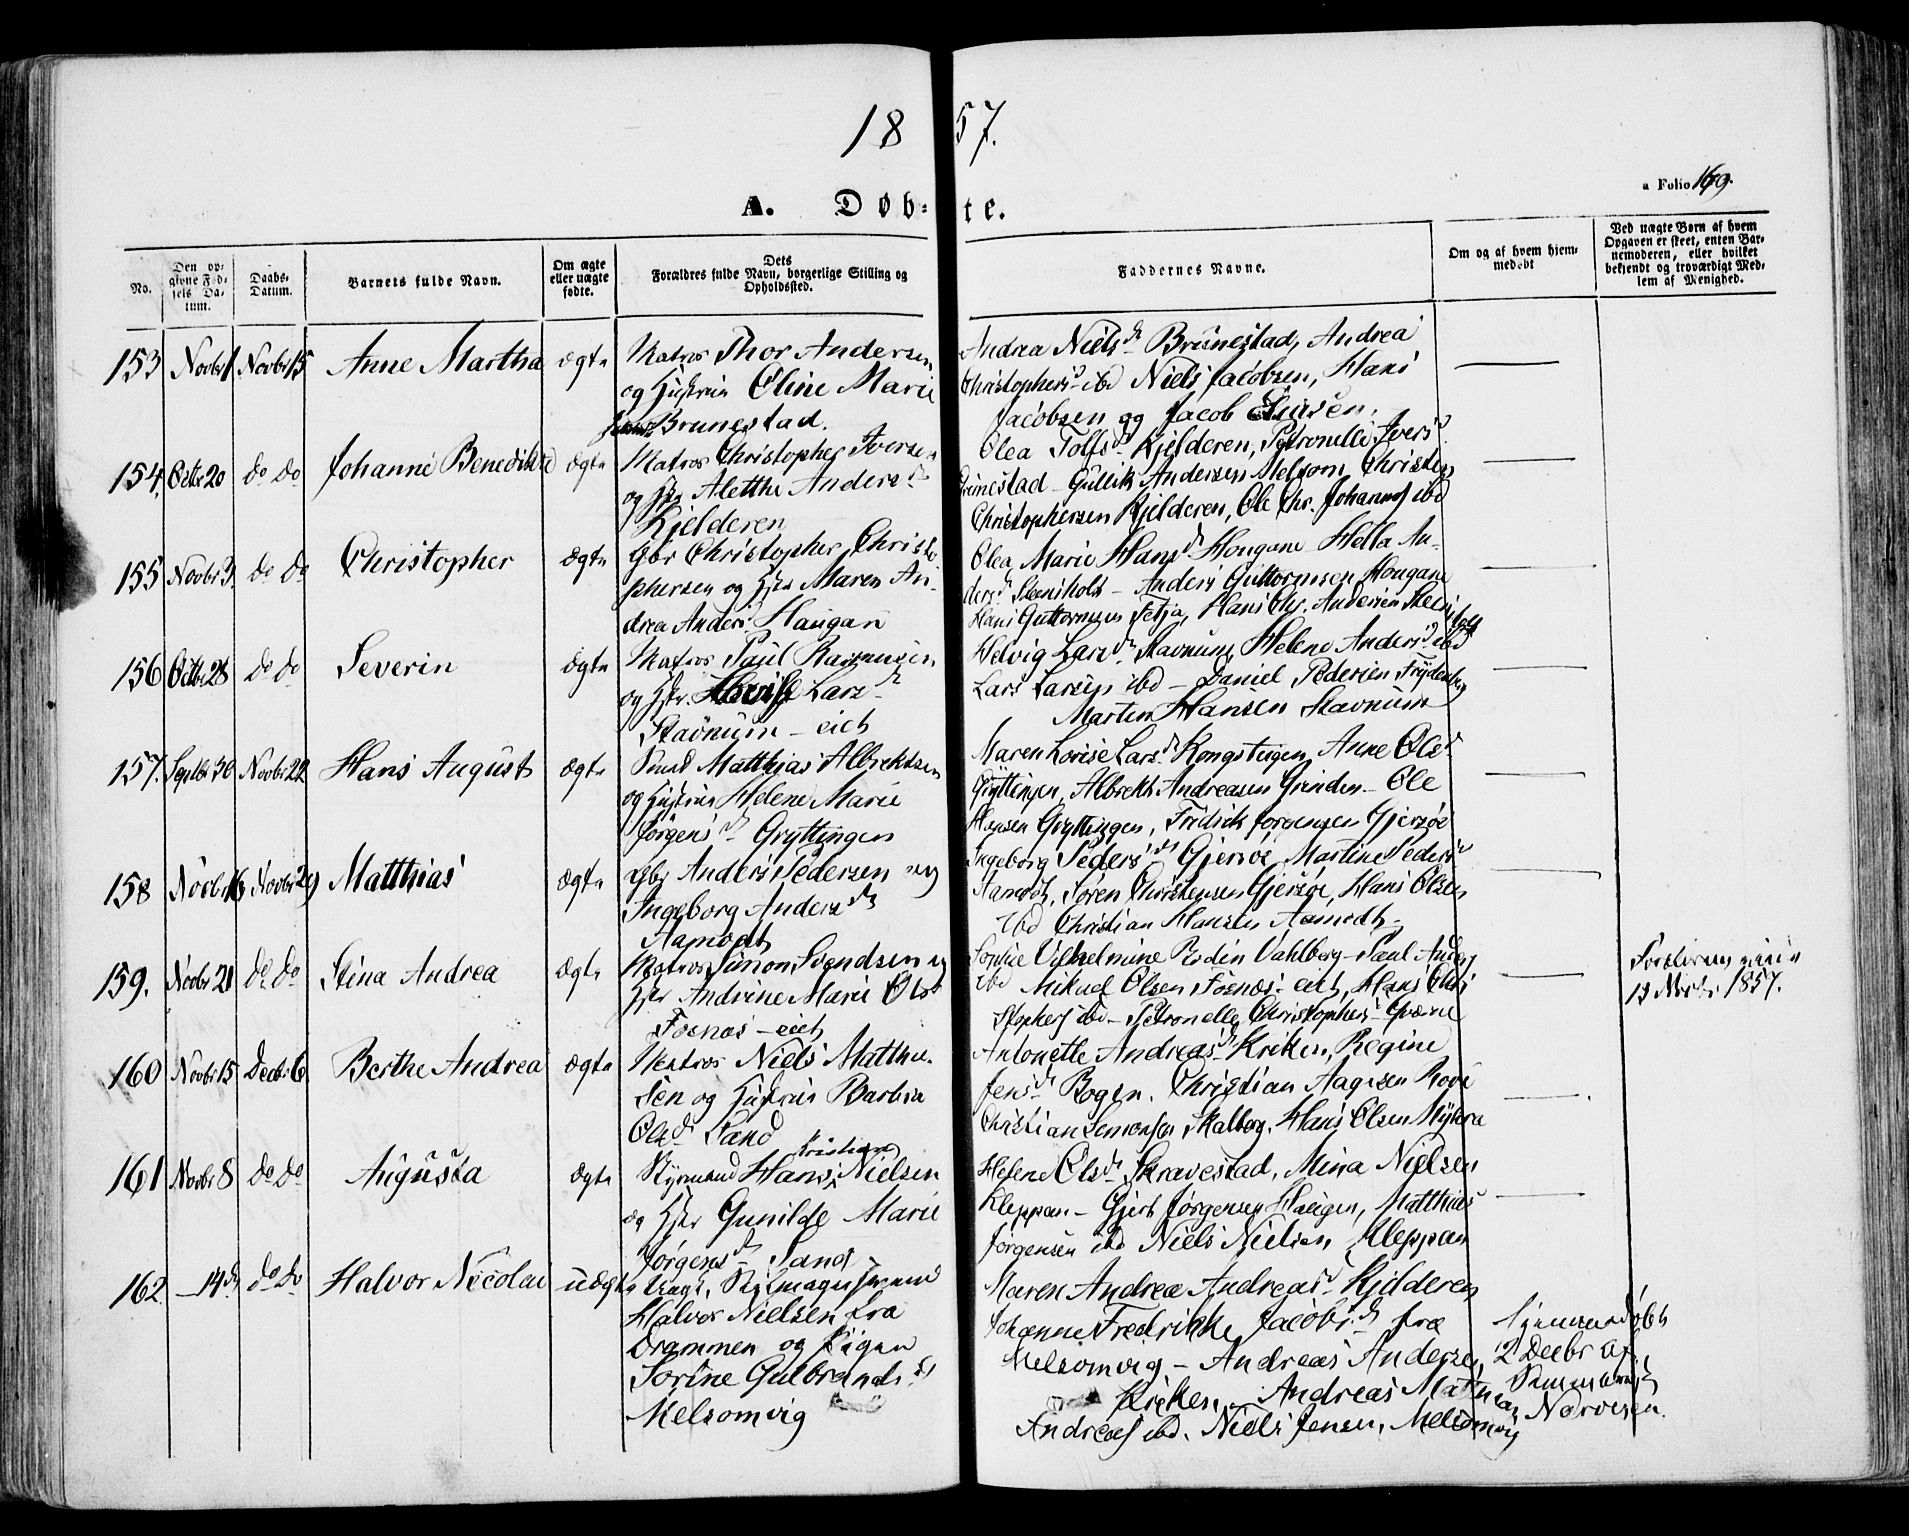 1857.
A. Døbte.
a Folio 169.
No.
Den opgivne Fødsels Datum.
Daabs-Datum.
Barnets fulde Navn.
Om ægte eller uægte fødte.
Dets Forældres fulde Navn, borgerlige Stilling og Opholdssted.
Faddernes Navne.
Om og af hvem hjemmedøbt
Ved uægte Børn af hvem Opgaven er skeet, enten Barnemoderen, eller hvilket bekjendt og troværdigt Medlem af Menighed.
153 Novbr 1 Novbr 15 Anne Martha ægte Matros Thor Andersen
og Hustru Oline Marie
Brunestad.
Andrea Nielsd Brunestad, Andrea
Christophersd ibd Niels Jacobsen, Hans
Jacobsen og Jacob
154. Octbr 20 do do Johanne Benedikte ægte Matros Christopher Iversen
og Hstr Alethe Andersd
Kjelderen
Olea Tolfsd Kjelderen, Petronelle Iversd
Brunestad - Gullik Andersen Melsom, Christen
Christophersen Kjelderen, Ole Chr. Johannes ibd
155 Novbr 3. do do Christopher ægte Gbr Christopher Christo
phersen og Hstr Maren An-
drea Andersd Haugan
Olea Marie Hansd Hougane Hella An-
dersd Steensholt - Anders Guttormsen Hougane
Hans Guttormsen Fetja, Hans Chr. Andersen Steensholt
156 Octbr 28 do do Severin ægte Matros Paul Rasmusen
og Hstr. Larsd
Stavnum - eiet
Helvig Larsd Stavnum, Helene Andersd ibd
Lars Larsen ibd - Daniel Pedersen Frydenberg
Martin Hansen Stavnum
157. Septbr 30 Novbr 22 Hans August ægte Smed Matthias Albrektsen
og Hustru Helene Marie
Jørgensd Gryttingen
Maren Lovise Larsd Kongsteigen, Anne Olsd
Gryttingen, Albrekt Andreasen Grinden - Ole
Hansen Gryttingen, Fredrik Jørgensen Gjersøe
158 Novbr 16 Novbr 29 Matthias ægte Gbr Anders Pedersen og
Ingeborg Andersd
Aamodt
Ingeborg Pedersd Gjersøe, Martine Pedersd
Aamodt, Søren Christensen Gjersøe, Hans Olsen
ibd Christian Hansen Aamodt -
159. Novbr 21 do do Stina Andrea ægte Matros Simon Svendsen og
Hstr Andrine Marie Olsd
Fosnæs - eiet
Sophie Vilhelmine Bodin Vahlberg - Paul Anders
ibd Mikael Olsen Fosnæs - eiet, Hans Chri
stophers ibd - Petronelle Christophersd Qværne
13 Novbr 1857.
160 Novbr 15 Decbr 6 Berthe Andrea ægte Matros Niels Matthi-
sen og Hustru Barbra
Olsd Sand
Antonette Andreasd Kriken, Regine
Jensd Bogen. Christian Aagesen Rove
Christian Semonsen Skalberg, Hans Olsen Myhra
161 Novbr 8 do do Augusta ægte Styrmand Hans Kristian Nielsen
og Hstr Gunilde Marie
Jørgensd Sand
Helene Olsd Skravestad, Mina Nielsen
Kleppan - Gjert Jørgensen Haugen, Matthias
Jørgensen ibd Niels Nielsen Kleppan
162 - 14 do do Halvor Nicolai uægte Ungk.
Halvor Nielsen fra
Drammen og Pigen
Sorine Gulbrandsd
Melsomvig
Maren Andrea Andreasd Kjelderen
Johanne Fredrikke Jacobsd fra
Melsomvig - Andreas Andersen
Kriken - Andreas Mathias
Andreas ibd. Niels Jensen, Melsomvig
hjemmedøbt
2 Decbr af
Norvesen.